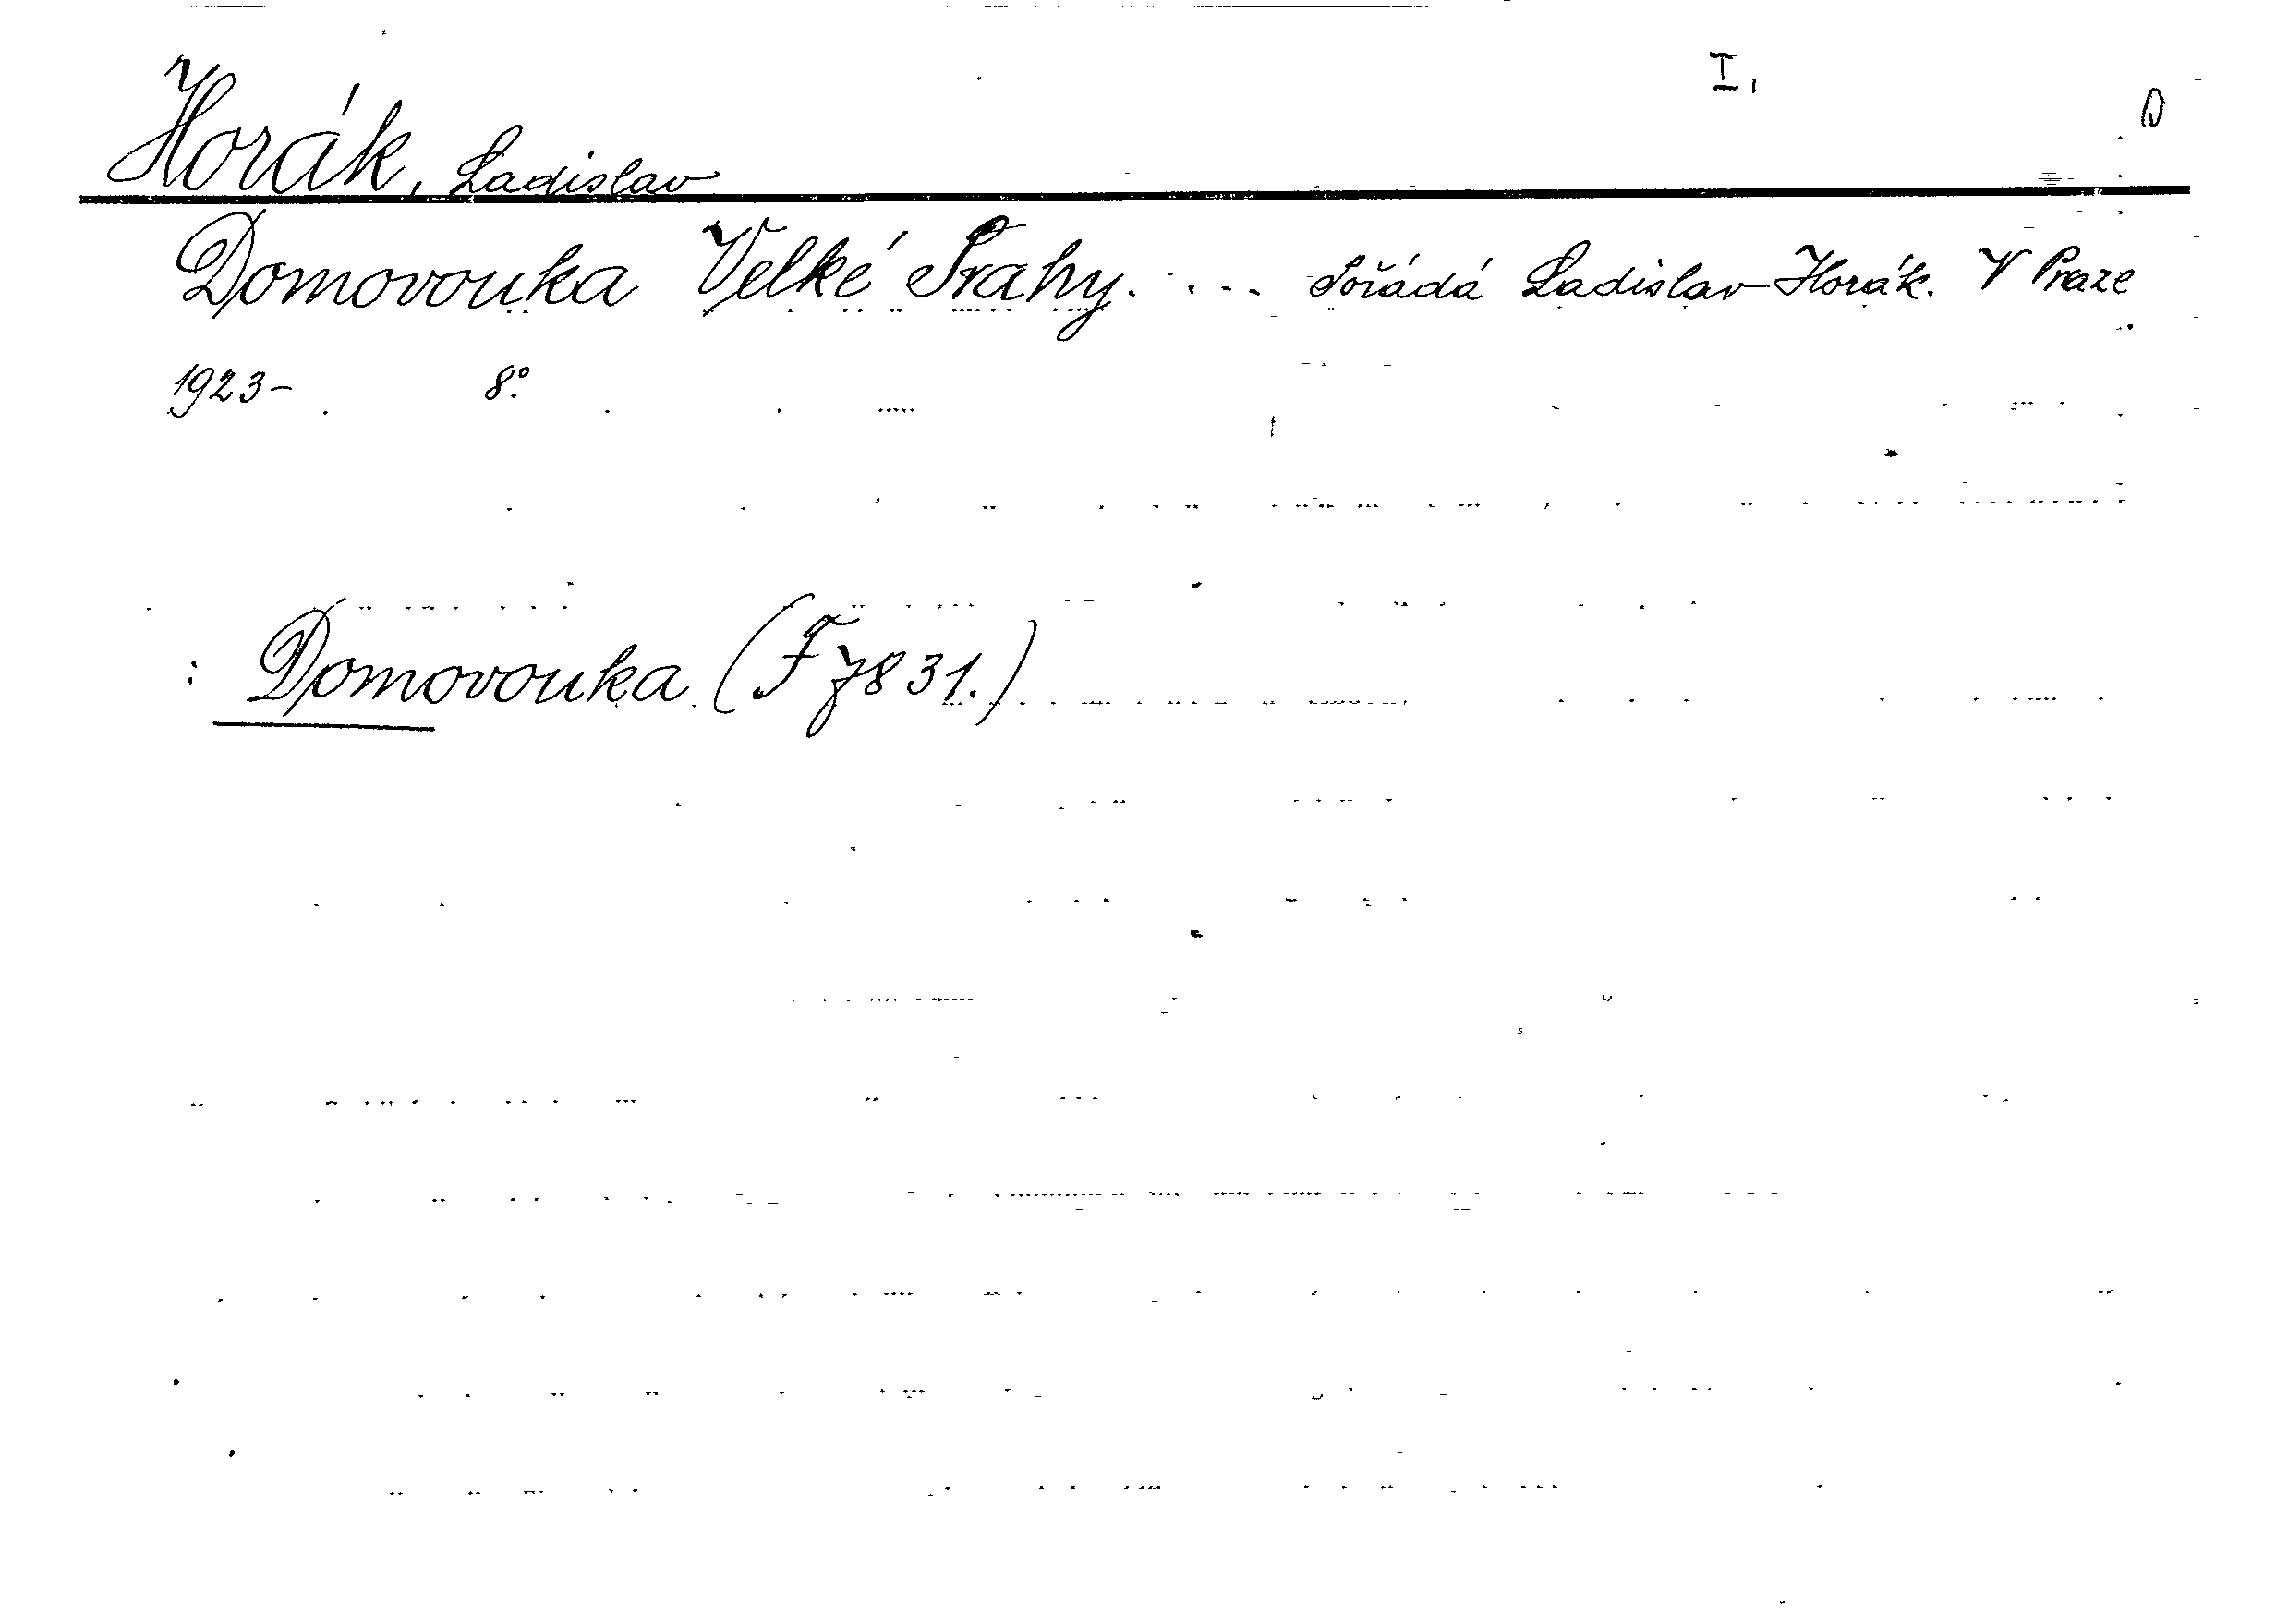 I.
D
Horák, Ladislav
Domovouka Velké Prahy. ... Pořádá Ladislav Horák. V Praze
1923- 8°.
: Domovouka (F 7831.)